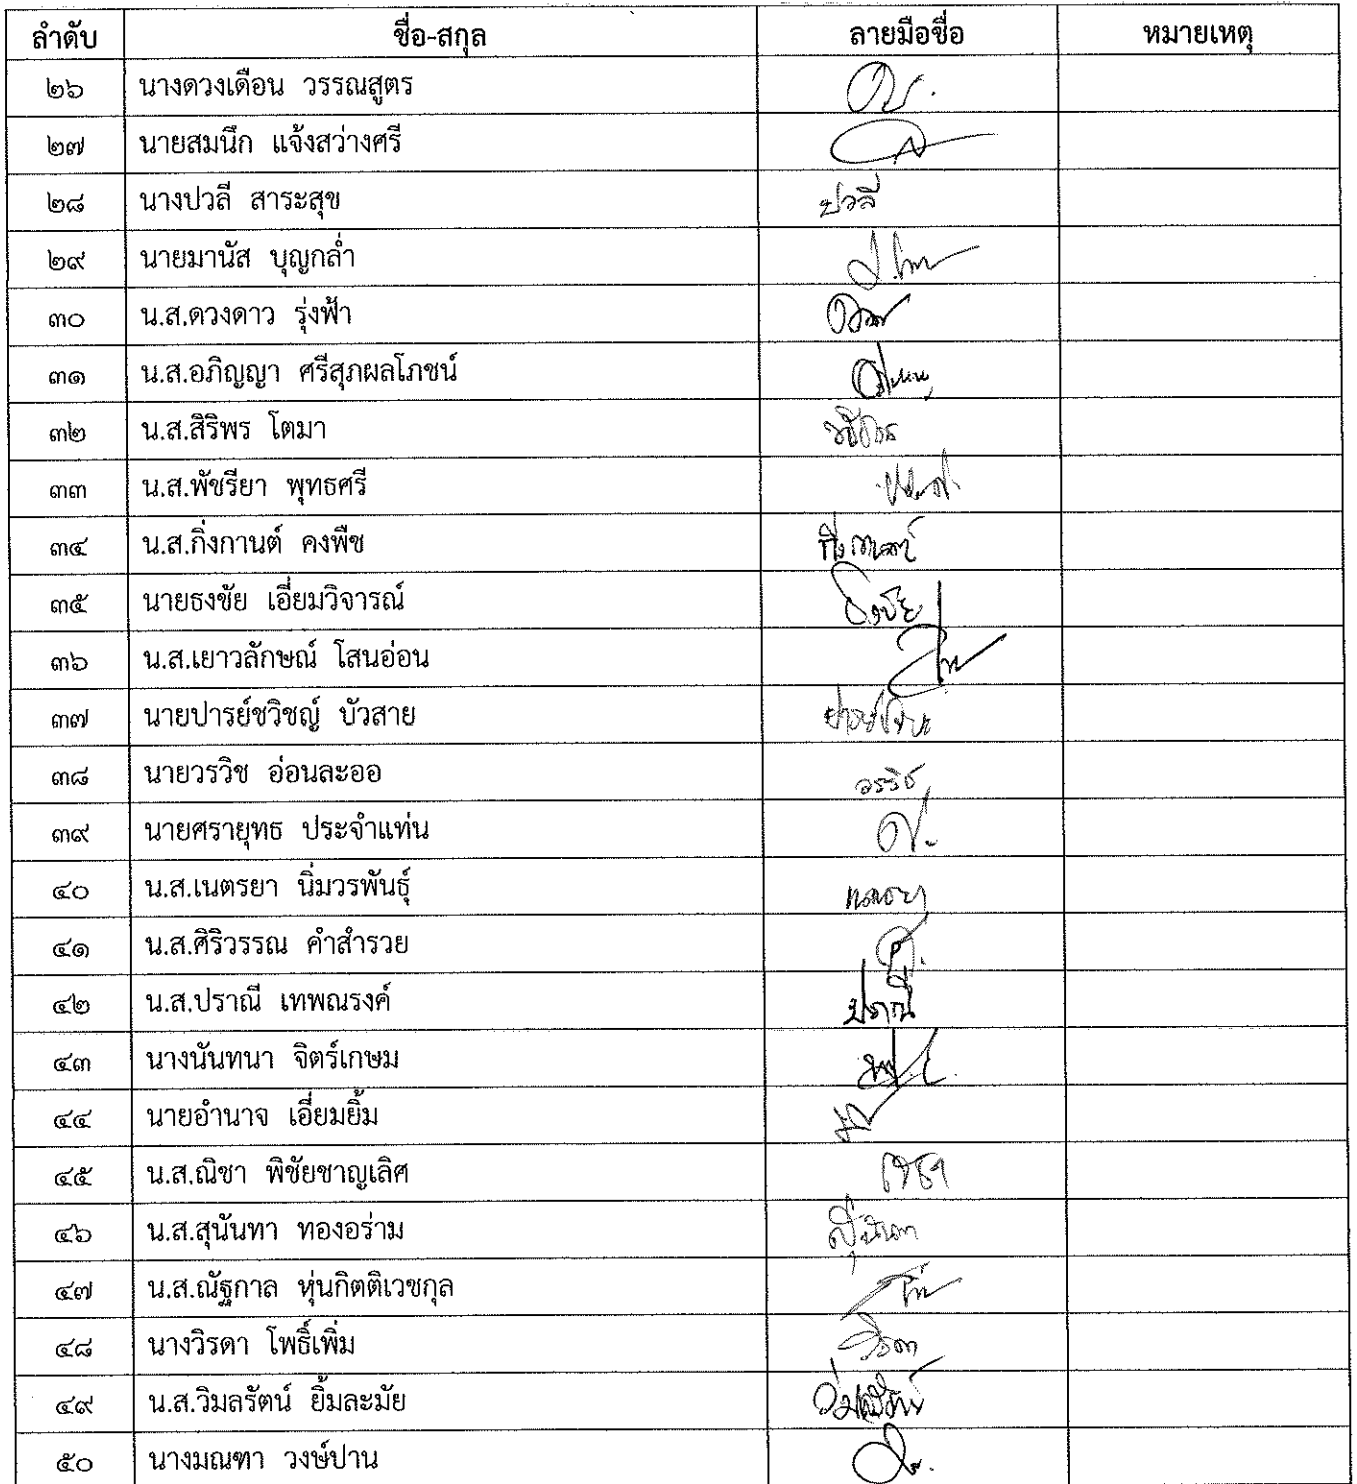 ลำดับ ชื่อ-สกุล ลายมือชื่อ หมายเหตุ
๒๖ นางดวงเดือน วรรณสูตร
๒๗ นายสมนึก แจ้งสว่างศรี
๒๘ นางปวลี สาระสุข ปวลี
๒๙ นายมานัส บุญกล่ำ
๓๐ น.ส.ดวงดาว รุ่งฟ้า
๓๑ น.ส.อภิญญา ศรีสุภผลโภชน์
๓๒ น.ส.สิริพร โตมา
๓๓ น.ส.พัชรียา พุทธศรี
๓๔ น.ส.กิ่งกานต์ คงพืช กิ่งกานต์
๓๕ นายธงชัย เอี่ยมวิจารณ์ ธงชัย
๓๖ น.ส.เยาวลักษณ์ โสนอ่อน
๓๗ นายปารย์ชวิชญ์ บัวสาย
๓๘ นายวรวิช อ่อนละออ วรวิช
๓๙ นายศรายุทธ ประจำแท่น
๔๐ น.ส.เนตรยา นิ่มวรพันธุ์ เนตรยา
๔๑ น.ส.ศิริวรรณ คำสำรวย
๔๒ น.ส.ปราณี เทพณรงค์ ปราณี
๔๓ นางนันทนา จิตร์เกษม
๔๔ นายอำนาจ เอี่ยมยิ้ม
๔๕ น.ส.ณิชา พิชัยชาญเลิศ ณิชา
๔๖ น.ส.สุนันทา ทองอร่าม สุนันทา
๔๗ น.ส.ณัฐกาล หุ่นกิตติเวชกุล
๔๘ นางวิรดา โพธิ์เพิ่ม วิรดา
๔๙ น.ส.วิมลรัตน์ ยิ้มละมัย วิมลรัตน์
๕๐ นางมณฑา วงษ์ปาน